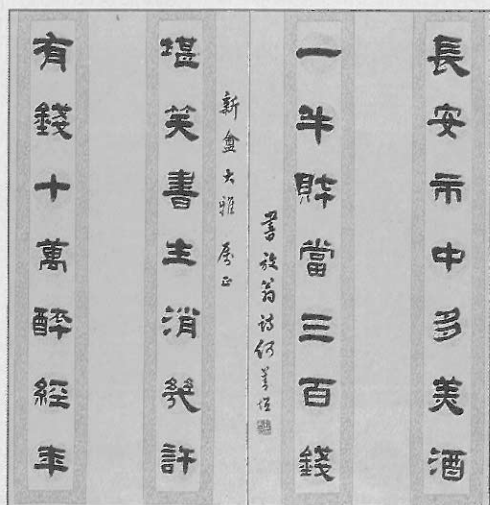 長安市中多美酒
一斗財當三百錢
書放翁詩
新盦大雅 屬正
堪笑書生消幾許
有錢十萬醉經年